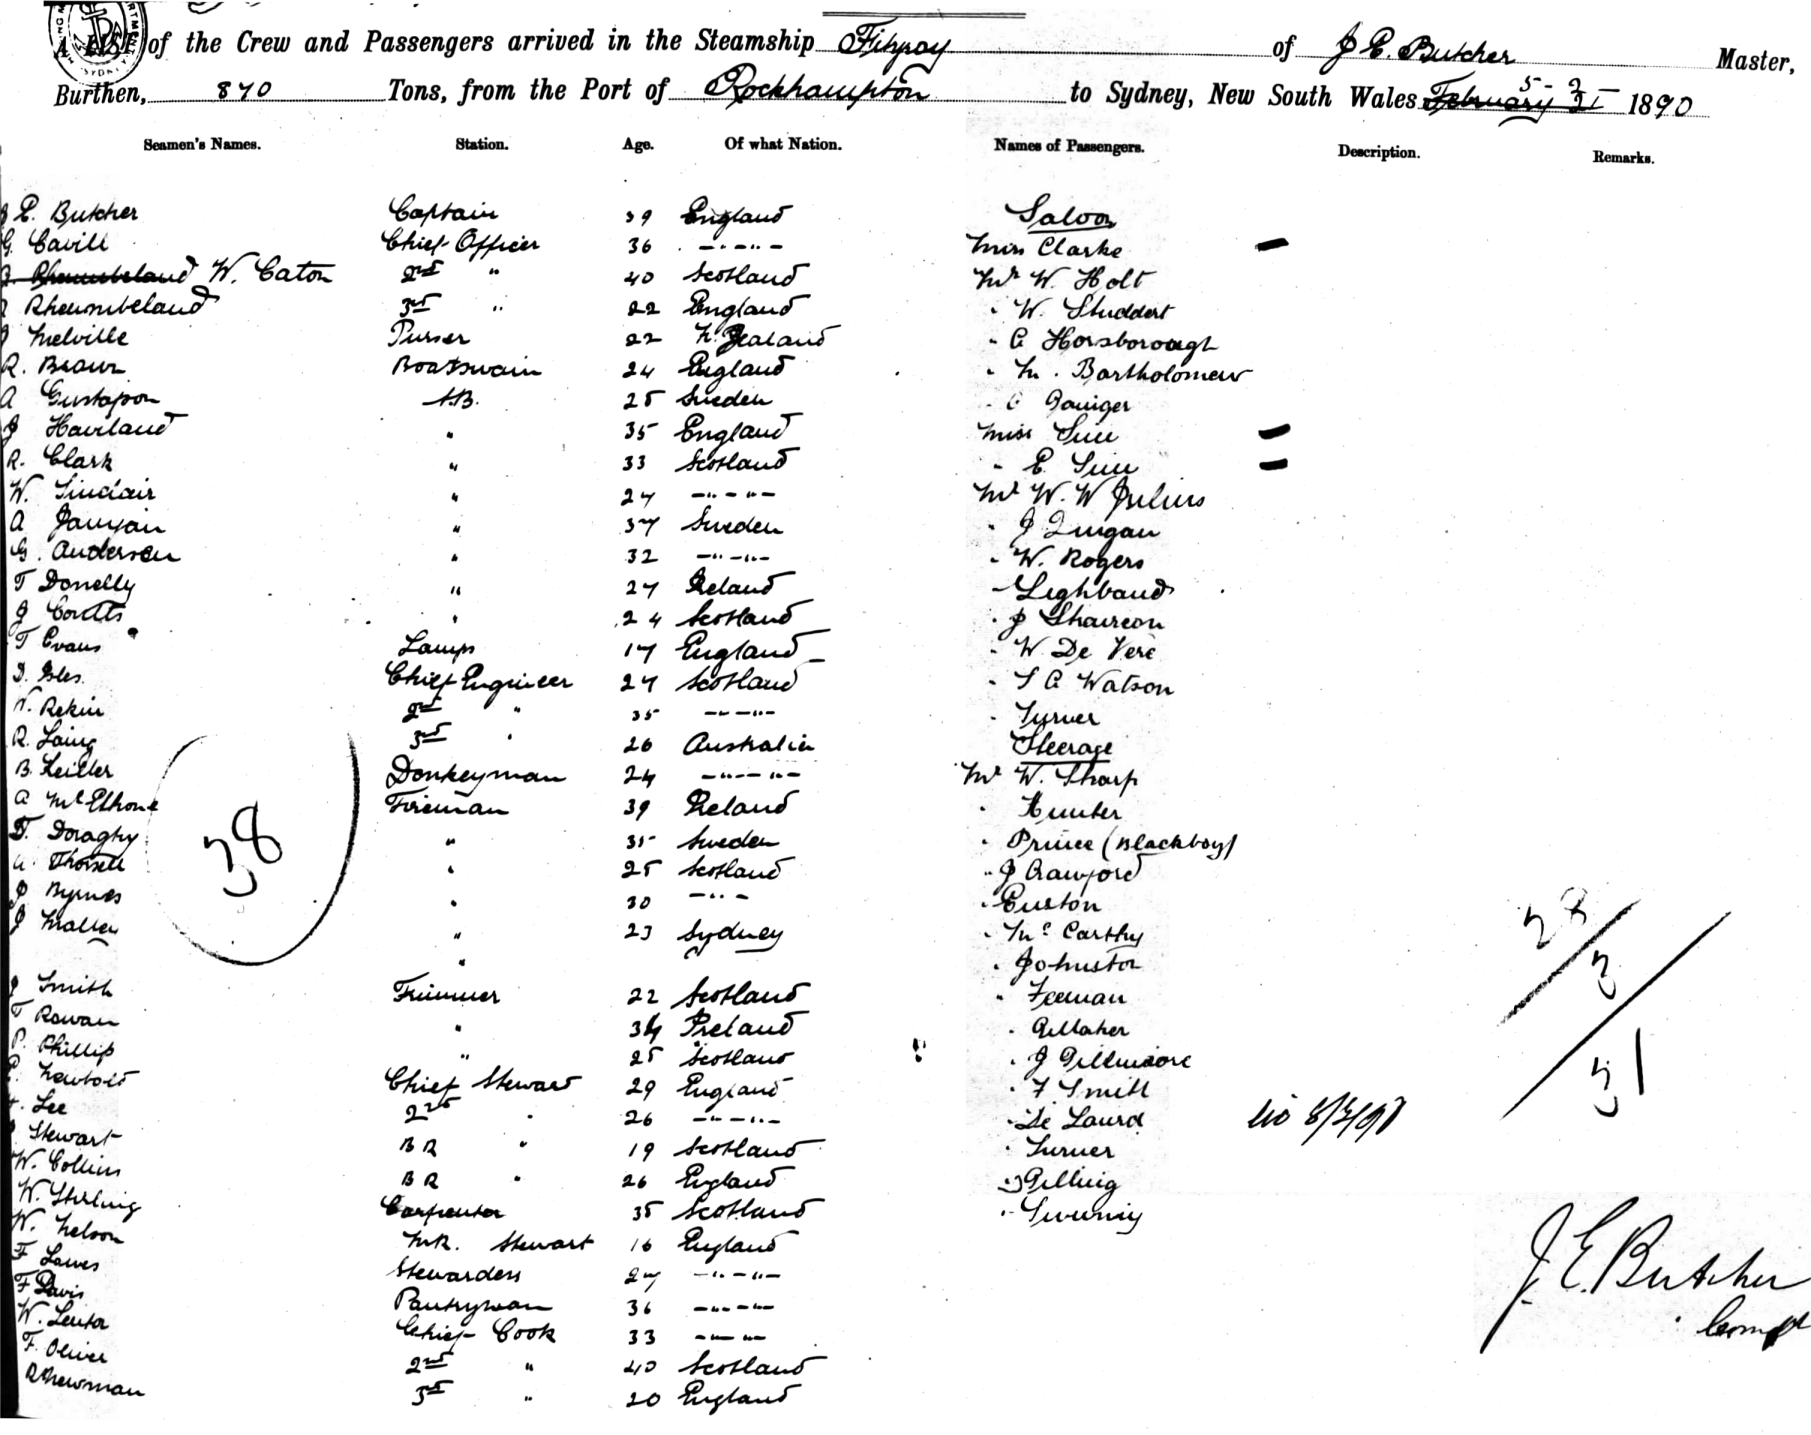 A List of the Crew and Passengers arrived in the Steamship Fitzroy of J E. Butcher Master,
Burthen, 870 Tons, from the Port of Rockhampton to Sydney, New South Wales February 1890
Seamen's Names. Station. Age. Of what Nation. Names of Passengers. Description. Remarks.
J E. Butcher Captain 39 England Saloon
G. Cavill Chief Officer 36 " " Miss Clarke
W. Caton 2nd " 40 Scotland Mr W. Holt
Rheumbeland 3rd " 22 England " W. Studdert
J Melville Purser 22 N. Zealand " A Horsborough
R. Brown Boatswain 24 England " M. Bartholomew
A Gustafson A.B. 25 Sweden
J Haviland " 35 England Miss Sim
R. Clark " 33 Scotland " E Sim
W. Sinclair " 27 " " Mr W. W Julius
A " 37 Sweden " J
G. Anderson " 32 " " " W. Rogers
T Donelly " 27 Ireland " Lighband
J Coutts " 24 Scotland " J
T Evans Lamps 17 England " W De Vere
D. Iles Chief Engineer 27 Scotland " S A Watson
W. Rekin 2nd " 35 " " " Turner
R. Laing 3rd " 26 Australia Steerage
B. Keiller Donkeyman 24 " " Mr W. Sharp
A McElhone Fireman 39 Ireland " Hunter
T. Doraghy " 35 Sweden " Prince (Blackboy)
" 25 Scotland " J Crawford
J Byrnes " 30 " " " Euston
J " 23 Sydney " McCarthy
" " Johnston
J Smith Trimmer 22 Scotland " Feenan
T Rowan " 34 Ireland " Gillaher
P. Phillip " 25 Scotland " J Gillmore
Newbold Chief Stewart 29 England " F Smith
Lee 2nd " 26 " "
J Stewart B R " 19 Scotland " Turner
W. Collins B R " 26 England " Gilling
W. Stirling Carpenter 35 Scotland " Sweeny
W. Nelson Stewart 16 England
F Lawes Stewardess 27 " "
F Davis Pantryman 36 " "
W. Chief Cook 33 " "
F. Oliver 2nd " 40 Scotland
R Newman 3rd " 20 England
38
28
3
31
J. E. Butcher